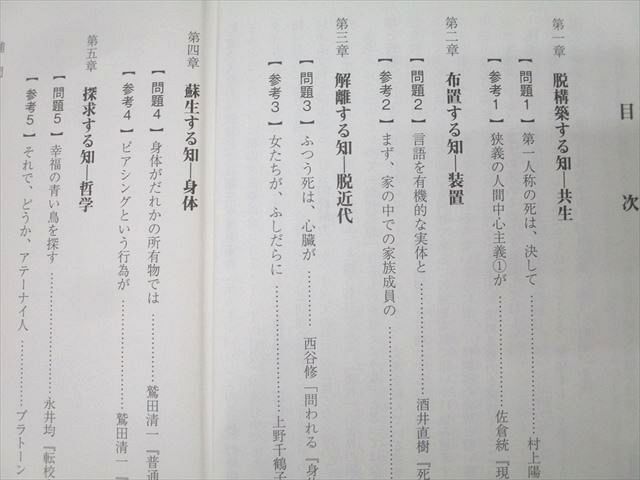 目次
第一章 脱構築する知―共生
【問題1】第一人称の死は、決して………………村上陽
【参考1】狭義の人間中心主義①が………………佐倉統『現
第二章 布置する知―装置
【問題2】言語を有機的な実体と………………酒井直樹『死
【参考2】まず、家の中での家族成員の………………
第三章 解離する知―脱近代
【問題3】ふつう死は、心臓が…………西谷修「問われる『身体
【参考3】女たちが、ふしだらに………………上野千鶴子
第四章 蘇生する知―身体
【問題4】身体がだれかの所有物では…………鷲田清一『普通
【参考4】ピアシングという行為が…………鷲田清一『
第五章 探求する知―哲学
【問題5】幸福の青い鳥を探す………………永井均『転校
【参考5】それで、どうか、アテーナイ人…………プラトーン